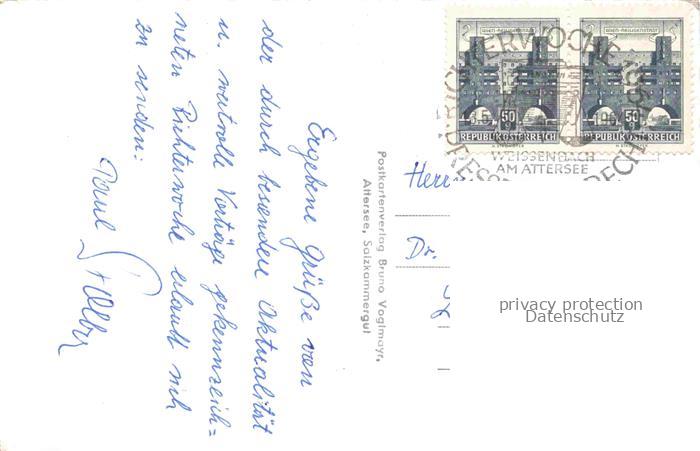 Ergebene Grüße von
der durch besondere Aktualität
u. wertvolle Vorträge gekennzeich=
neten Richterwoche erlaubt sich
zu senden:
Paul
Postkartenverlag Bruno Voglmayr,
Attersee, Salzkammergut
WIEN-HEILIGENSTADT WIEN-HEILIGENSTADT
50 50
REPUBLIK ÖSTERREICH REPUBLIK ÖSTERREICH
RICHTERWOCHE
WEISSENBACH
AM ATTERSEE
Herrn
Dr.
privacy protection
Datenschutz